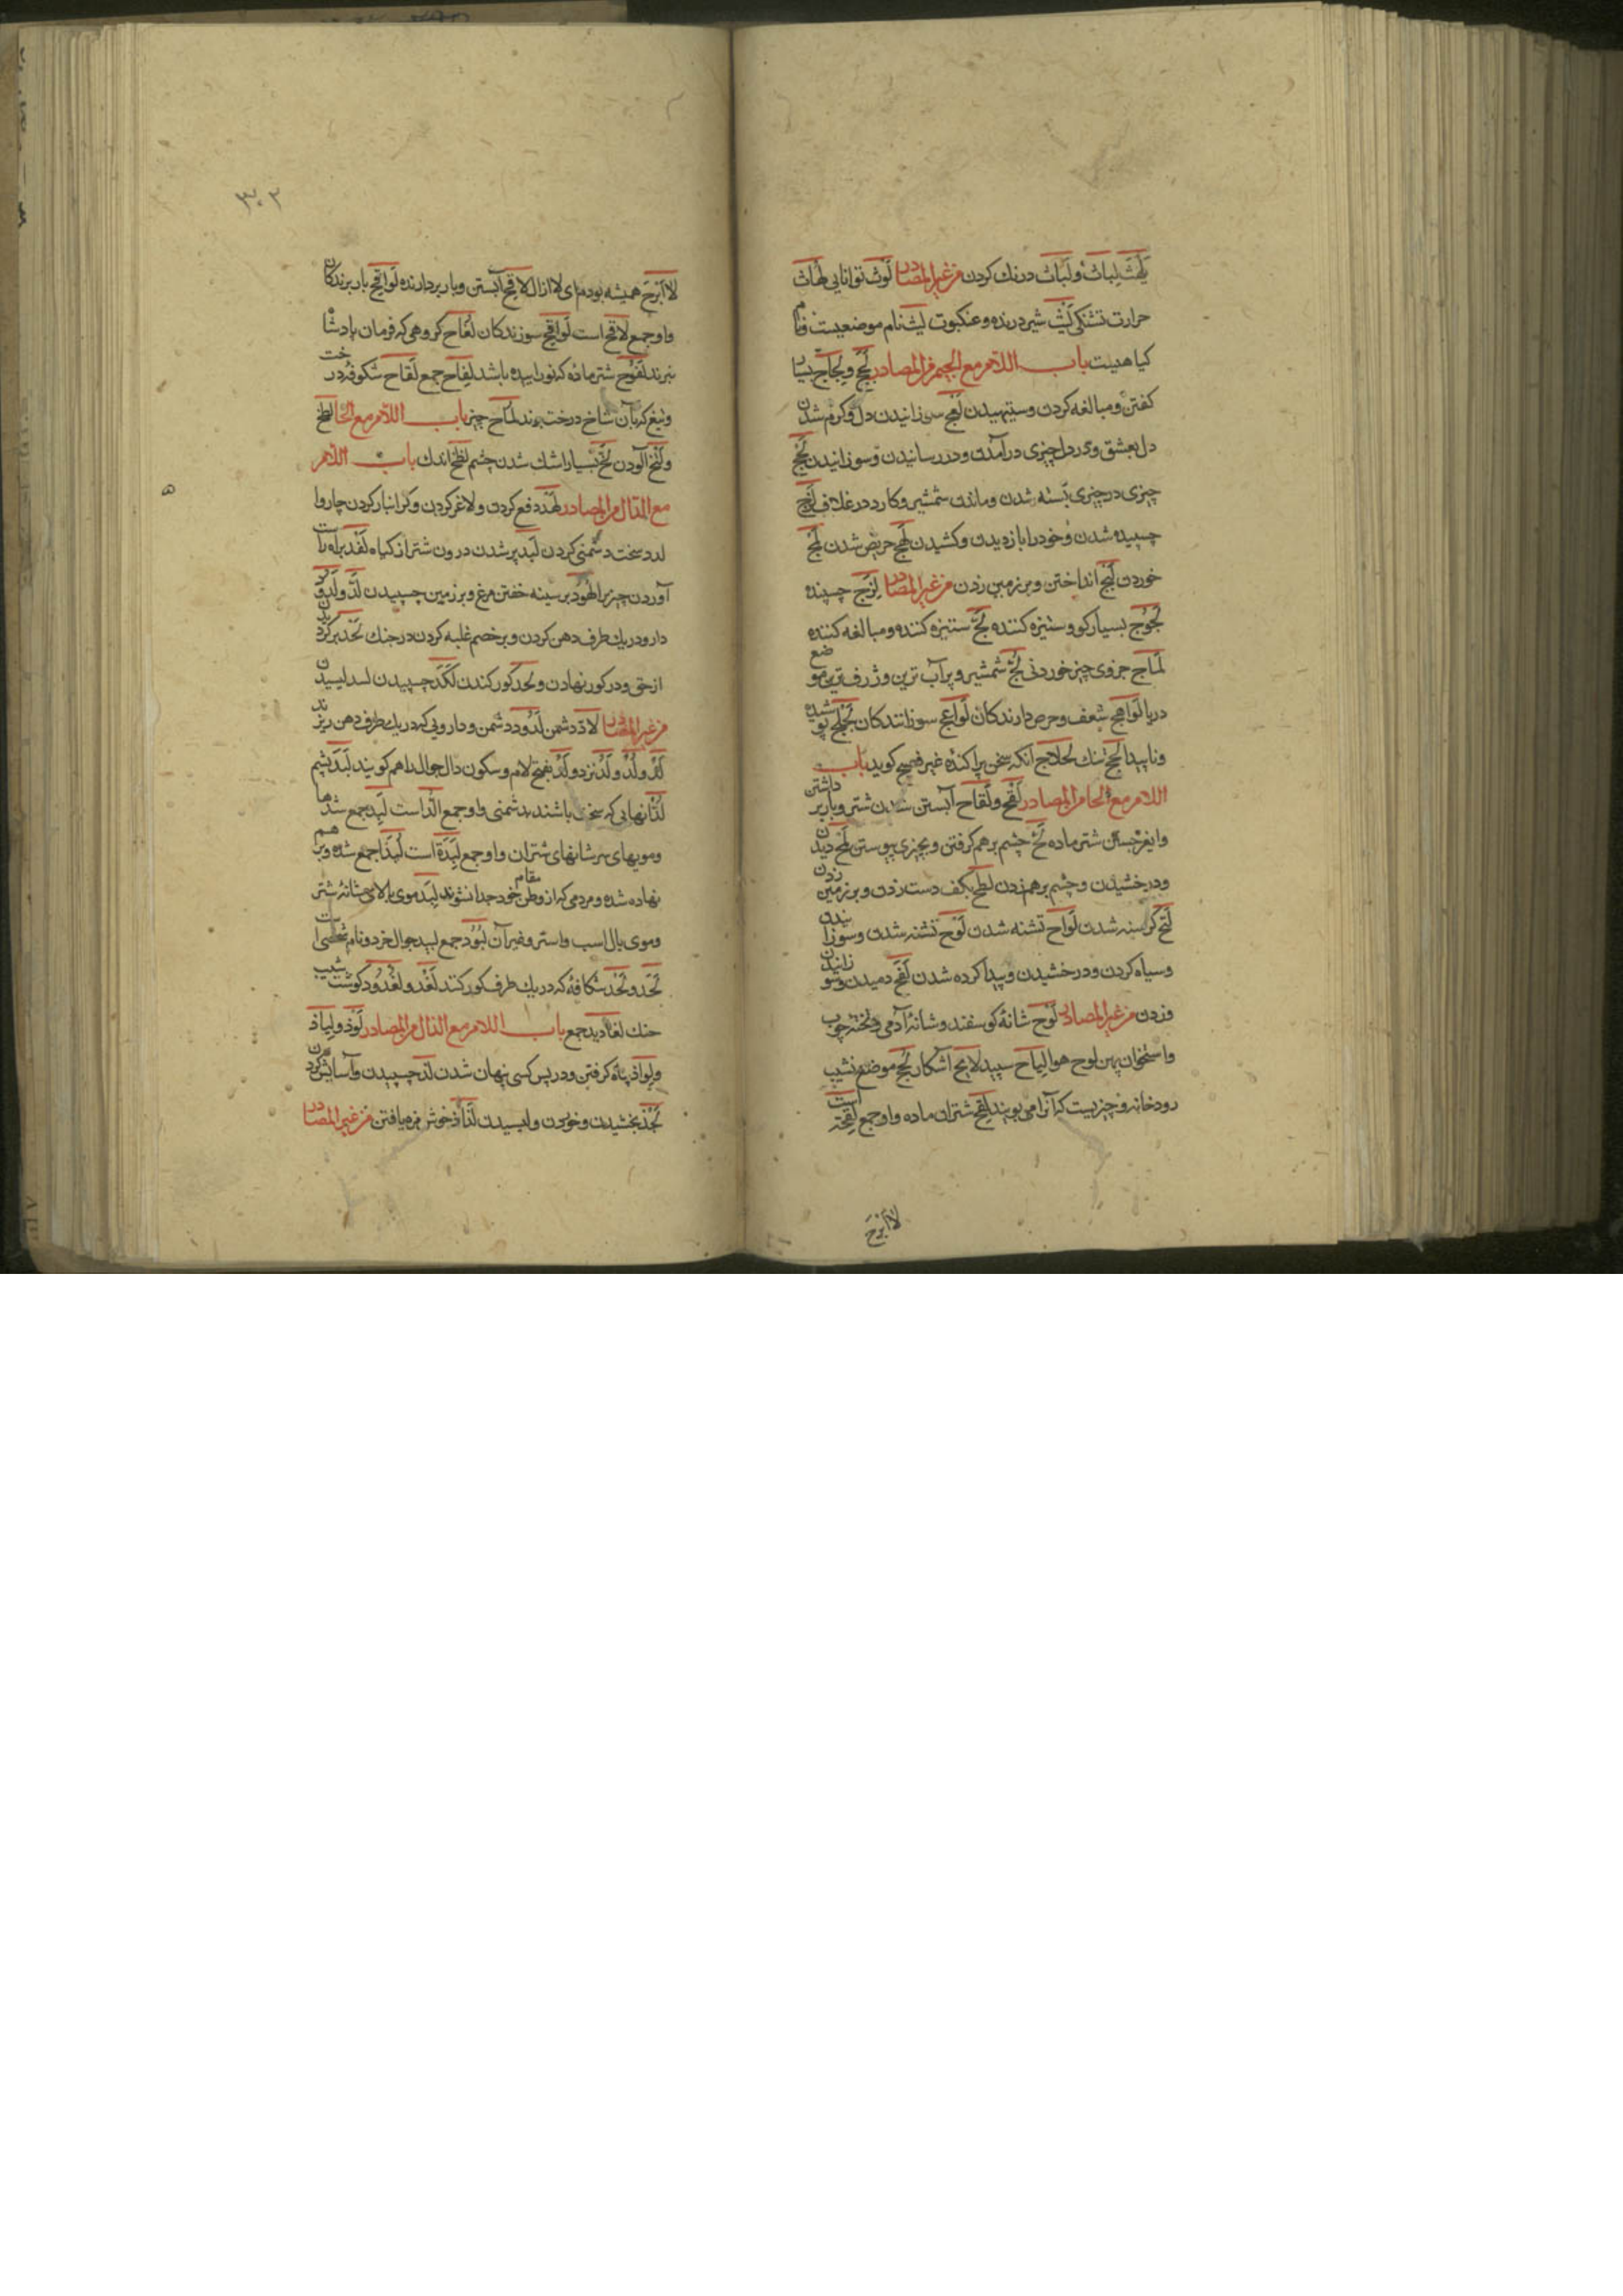 یَلْهَثُ لِباث و لَباث درنك كردن من غیر المصادر لَوث توانایی لُهاث
حرارت تشنكی لَیث شیر درنده و عنكبوت لیث نام موضعیست و نام
كیاهیست باب اللام مع الجیم من المصادر لَجّ و لَجاج بسیار
كفتن و مبالغه كردن و ستیهیدن لَعج سوزانیدن دل و كرم شدن
دل بعشق و در دل چیزی درآمدن و درد رسانیدن و سوزانیدن
چیزی در چیزی بسته شدن و ماندن شمشیر و كارد در غلاف لزج
چسپیده شدن و خود را بازدیدن و كشیدن لَهَج حریص شدن لَمج
خوردن لَبج انداختن و بر زمین زدن من غیر المصادر لَزِج چسپنده
لَجوج بسیار كو و ستیزه كننده لَجّ ستیزه كننده و مبالغه كننده
لَماج جزوی چیز خوردنی لُجّ شمشیر و پرآب ترین و ژرف ترین موضع
دریا لَواهج شعف و حرص دارندكان لَواعج سوزانندكان لَجلَج پوشیده
و ناپیدا تنك لَجلاج آنكه سخن پراكنده غیر فصیح كوید باب
اللام مع الحا من المصادر لَقح و لَقاح آبستن شدن شتر و بار برداشتن
شتر ماده لَحّ چشم بر هم كرفتن و بچیزی پیوستن لَمح دیدن
و درخشیدن و چشم بر هم زدن لَطح بكف دست زدن و بر زمین زدن
لَتَح كرسنه شدن لُواح تشنه شدن لَوح تشنه شدن و سوزانیدن
و سیاه كردن و درخشیدن و پیدا كرده شدن لَفح دمیدن و سوزانیدن
من غیر المصادر لَوح شانهٔ كوسفند و شانهٔ آدمی و تختهٔ چوب
و استخوان پهن لوح هوا لِیاح سپید لایح آشكار لُجح موضع نشیب
رودخانه و چیزیست كه آنرا می بویند لِقَح شتران ماده و او جمع لِقحه است
لا ابرح
۳۰۲
لا ابرَحَ همیشه بودم ای لا ازال لاقح آبستن و بار بردارنده لَواقح بار برندكان
و او جمع لاقح است لَوافح سوزندكان لَقاح كروهی كه فرمان پادشاه
نبرند لَقوح شتر ماده كه نو زاییده باشد لِقاح جمع لَقاح شكوفه درخت
كه بآن شاخ درخت لَماح چیز باب اللام مع الخا لَطخ
آلودن لَخّ بسیار اشك شدن چشم لَطخ اندك باب اللام
مع الدال من المصادر لَهد دفع كردن و لاغر كردن و كرانبار كردن چاروا
لدد سخت دشمنی كردن لَبَد پر شدن درون شتر از كیاه لَغد براه راست
آوردن چیز را لُبود بر سینه خفتن مرغ و بر زمین چسپیدن لَدّ و لُدود
دارو در یك طرف دهن كردن و بر خصم غلبه كردن در جنك لَحد بركردیدن
از حق و در كور نهادن و لحد كور كندن لَكَد چسپیدن لسد لیسیدن
من غیر المصادر لادّ دشمن لَدود دشمن و دارویی كه در یك طرف دهن ریزند
نزد و لَدْ بفتح لام و سكون دال جوال را هم كویند لِبد پشم
لُدّ آنهایی كه سخت باشند بدشمنی و او جمع الدّ است لِبَد جمع شدها
و مویهای سر شانهای شتران و او جمع لِبدَة است لُبَدا جمع شده و بر هم
نهاده شده و مردمی كه از وطن مقام خود جدا نشوند لِبد موی بالای شانهٔ شتر
و موی یال اسب و استر و غیر آن لُبود جمع لبید جوال خرد و نام شخصی است
لَحد و لُحد شكافهٔ كه در یك طرف كور كنند لُغد و لُغدود كوشت شیب
حنك لغادید جمع باب اللام مع الذال من المصادر لَوذ و لِیاذ
و لِواذ پناه كرفتن و در پس كسی پنهان شدن لَذّ چسپیدن و آسایش كردن
و خوردن و لیسیدن لَذاذ خوش مزه یافتن من غیر المصادر